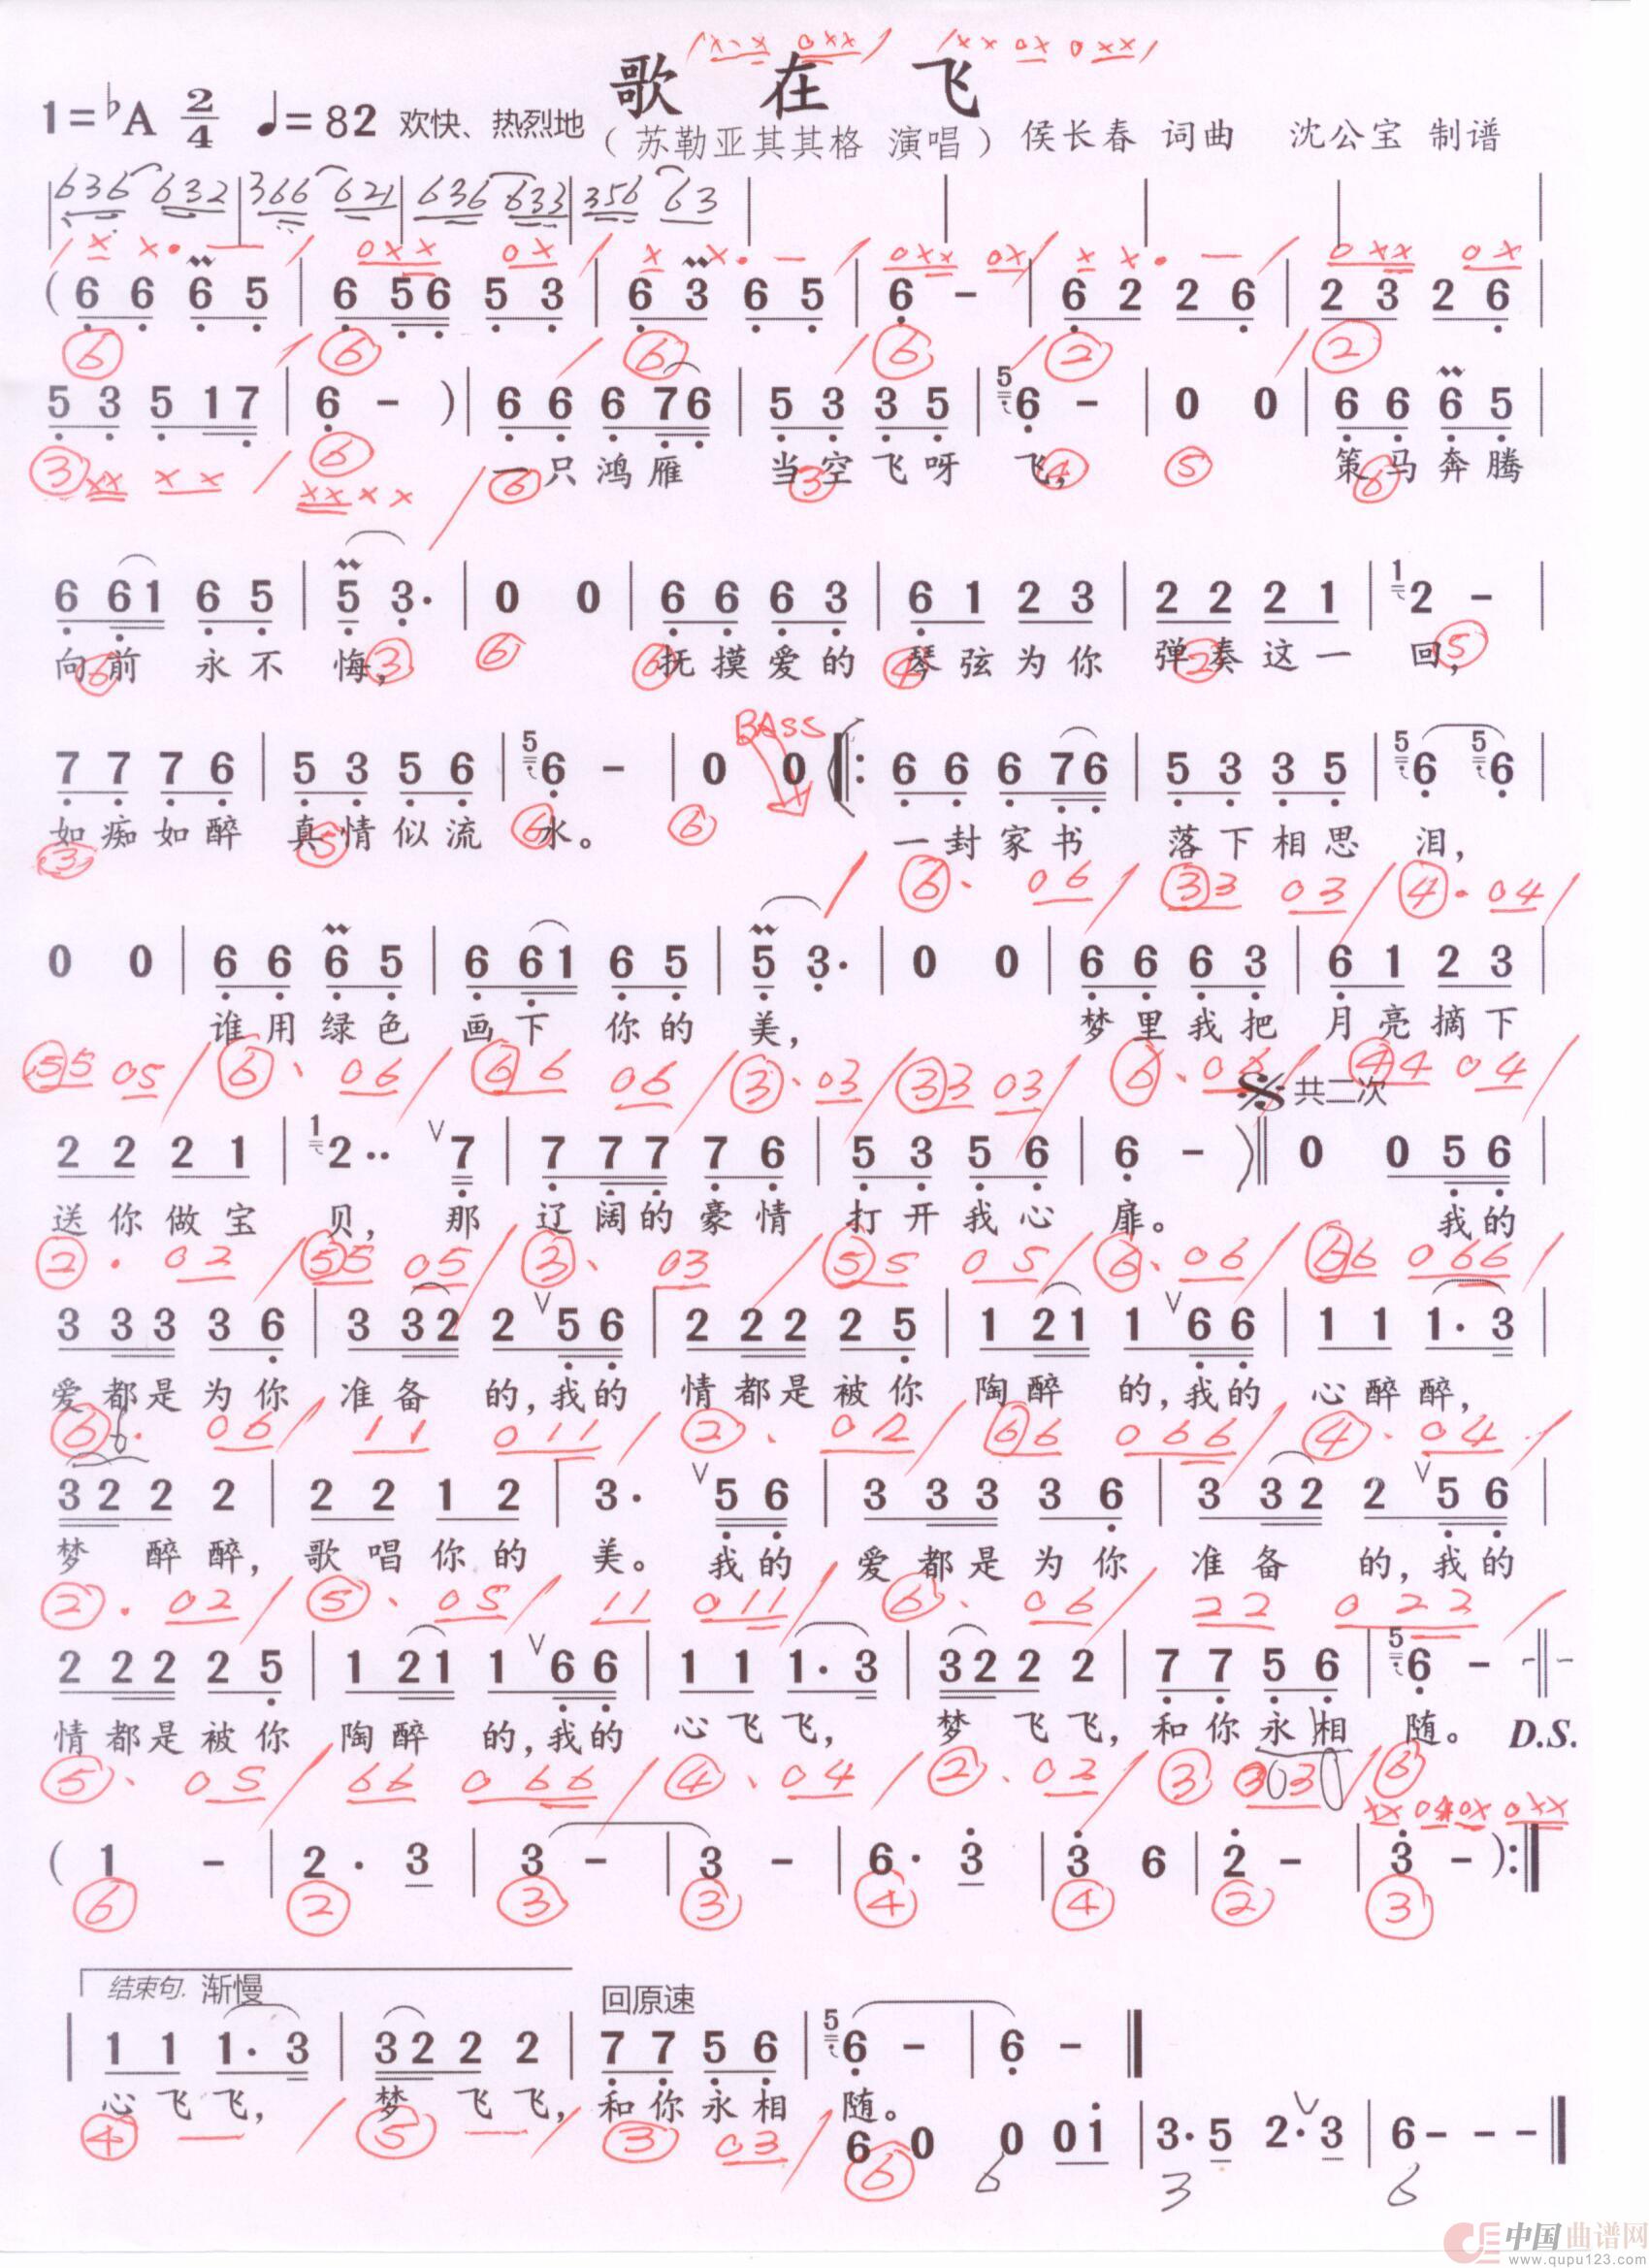 歌 在 飞
1=♭A 2/4 ♩=82 欢快、热烈地 （苏勒亚其其格 演唱） 侯长春 词曲 沈公宝 制谱
636 632 | 366 621 | 636 633 | 356 63 |
( 6 6 6 5 | 6 56 5 3 | 6 3 6 5 | 6 - | 6 2 2 6 | 2 3 2 6 |
⑥ / ⑥ / ⑥ / ⑥ / ② / ②
5 3 5 17 | 6 - ) | 6 6 6 76 | 5 3 3 5 | 5 6 - | 0 0 | 6 6 6 5 |
一只鸿雁 当空飞呀 飞, 策马奔腾
6 61 6 5 | 5 3· | 0 0 | 6 6 6 3 | 6 1 2 3 | 2 2 2 1 | 1 2 - |
向前 永不 悔, 抚摸爱的 琴弦为你 弹奏这一 回,
BASS
7 7 7 6 | 5 3 5 6 | 5 6 - | 0 0 ‖: 6 6 6 76 | 5 3 3 5 | 5 6 5 6 |
如痴如醉 真情似流 水。 一封家书 落下相思 泪,
⑥· 06 / ③3 03 / ④· 04 /
0 0 | 6 6 6 5 | 6 61 6 5 | 5 3· | 0 0 | 6 6 6 3 | 6 1 2 3 |
谁用绿色 画下 你的 美, 梦里我把 月亮摘下
⑤5 05 / ⑥· 06 / ⑥6 06 / ③· 03 / ③3 03 / ⑥· 06 / ④4 04 /
共二次
2 2 2 1 | 1 2·· ∨ 7 | 7 77 7 6 | 5 3 5 6 | 6 - ‖ 0 0 56 |
送你做宝 贝, 那 辽阔的豪情 打开我心 扉。 我的
②· 02 / ⑤5 05 / ③· 03 / ⑤5 05 / ⑥· 06 / ⑥6 066 /
3 33 3 6 | 3 32 2 ∨ 56 | 2 22 2 5 | 1 21 1 ∨ 66 | 1 1 1· 3 |
爱都是为你 准备 的,我的 情都是被你 陶醉 的,我的 心醉醉,
⑥· 06 / 11 011 / ②· 02 / ⑥6 066 / ④· 04 /
32 2 2 | 2 2 1 2 | 3· ∨ 56 | 3 33 3 6 | 3 32 2 ∨ 56 |
梦 醉醉, 歌唱你的 美。 我的 爱都是为你 准备 的,我的
②· 02 / ⑤· 05 / 11 011 / ⑥· 06 / 22 022 /
2 22 2 5 | 1 21 1 ∨ 66 | 1 1 1· 3 | 32 2 2 | 7 7 5 6 | 5 6 - ‖
情都是被你 陶醉 的,我的 心飞飞, 梦 飞飞,和你永相 随。 D.S.
⑤· 05 / 66 066 / ④· 04 / ②· 02 / ③ 3030 / ⑥
( 1 - | 2· 3 | 3 - | 3 - | 6· 3 | 3 6 | 2 - | 3 - ) :‖
⑥ ② ③ ③ ④ ④ ② ③
结束句. 渐慢 回原速
| 1 1 1· 3 | 32 2 2 | 7 7 5 6 | 5 6 - | 6 - ‖
心飞飞, 梦 飞飞,和你永相 随。
④ — / ⑤ — / ③ 03 / ⑥
6 0 0 01 | 3·5 2·∨3 | 6 - - - ‖
6 3 6
中国曲谱网
www.qupu123.com